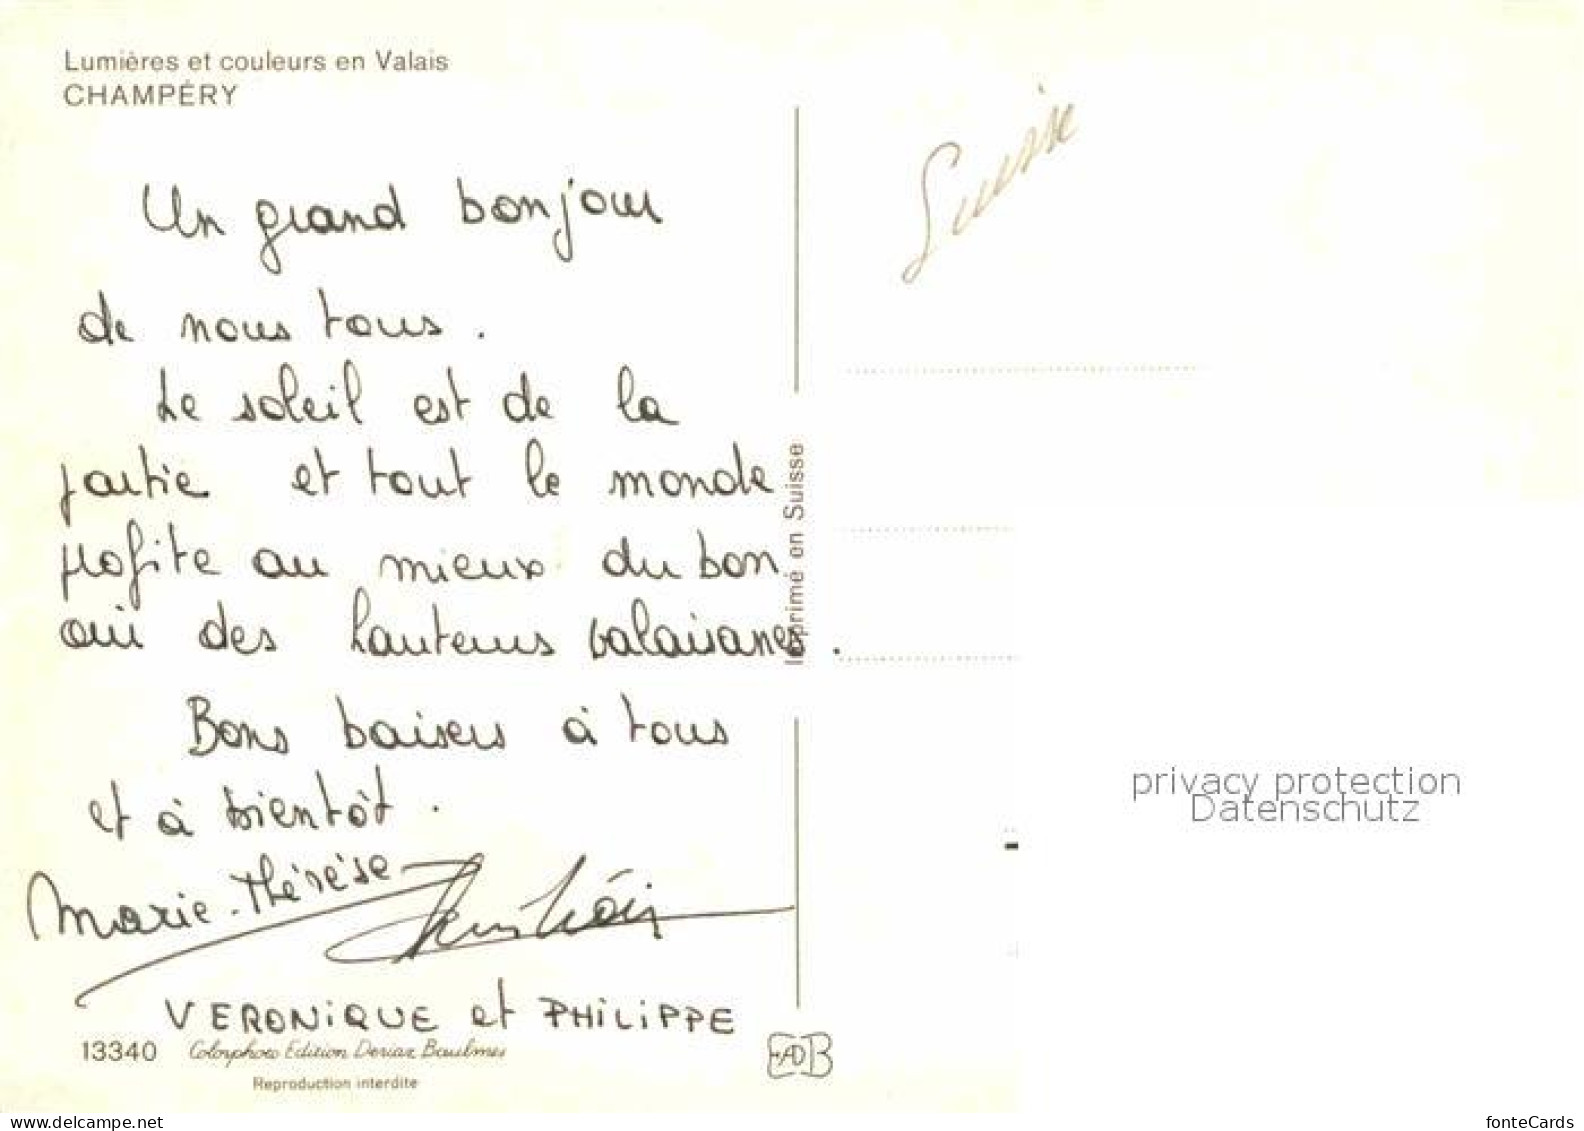 Lumières et couleurs en Valais
CHAMPÉRY
Suisse
Un grand bonjour
de nous tous.
Le soleil est de la
partie et tout le monde
profite au mieux du bon
air des hauteurs valaisanes.
Bons baisers à tous
et à bientôt.
Marie-Thérèse
VERONIQUE et PHILIPPE
13340 Colorphoto Edition Deriaz Baulmes
Reproduction interdite
Imprimé en Suisse
privacy protection
Datenschutz
delcampe.net
fonteCards